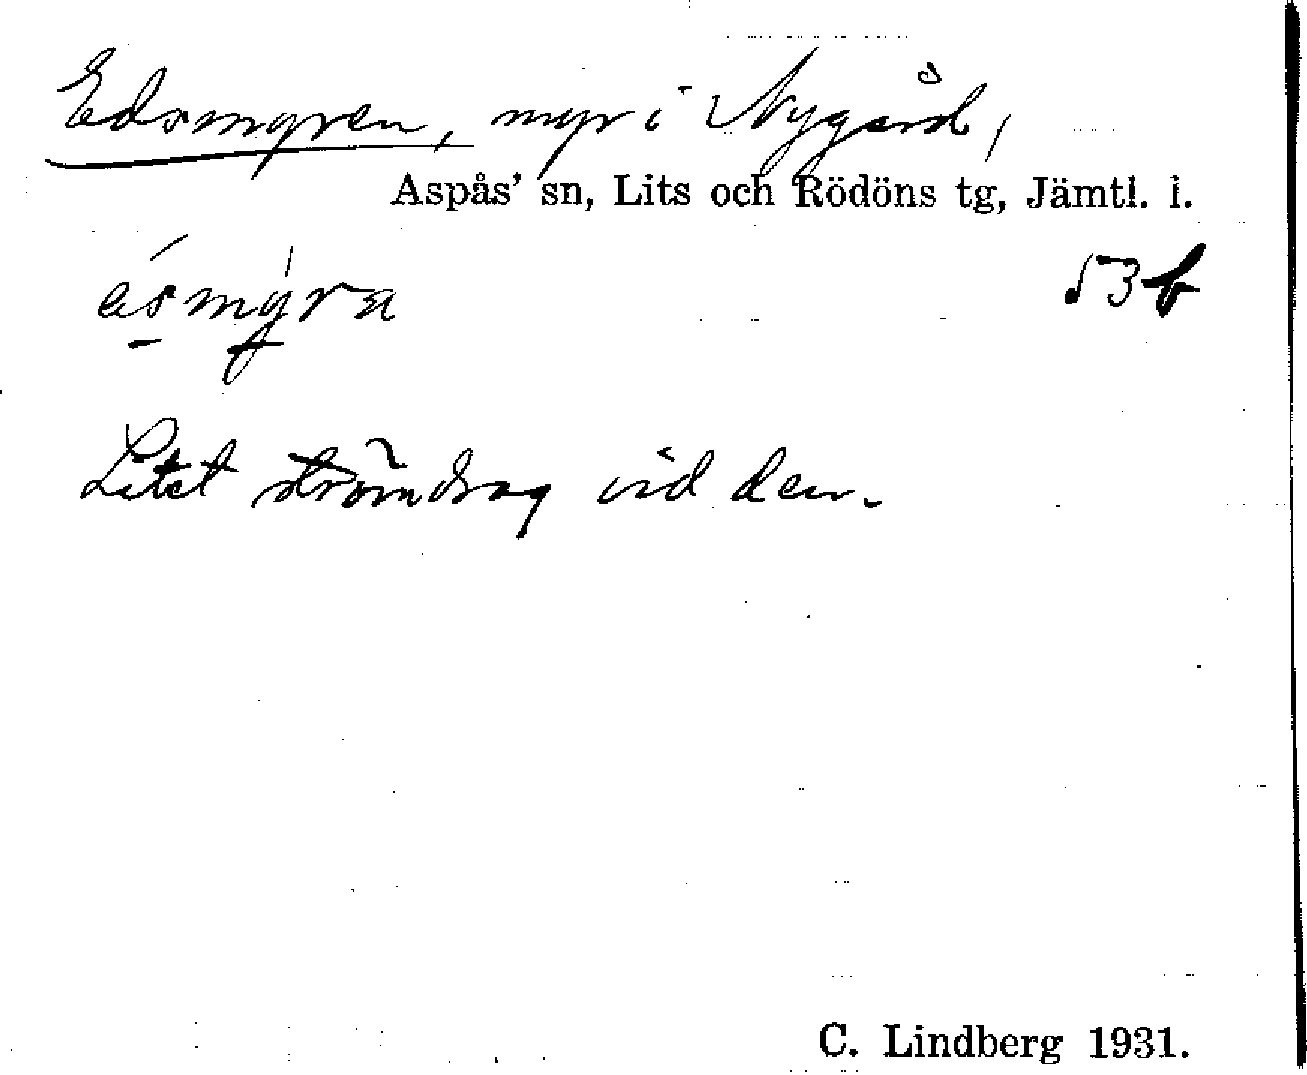 Edsmyren, myr i Nygård,
Aspås' sn, Lits och Rödöns tg, Jämtl. l.
ésmy̆ra 53b
Litet strömdrag vid den.
C. Lindberg 1931.